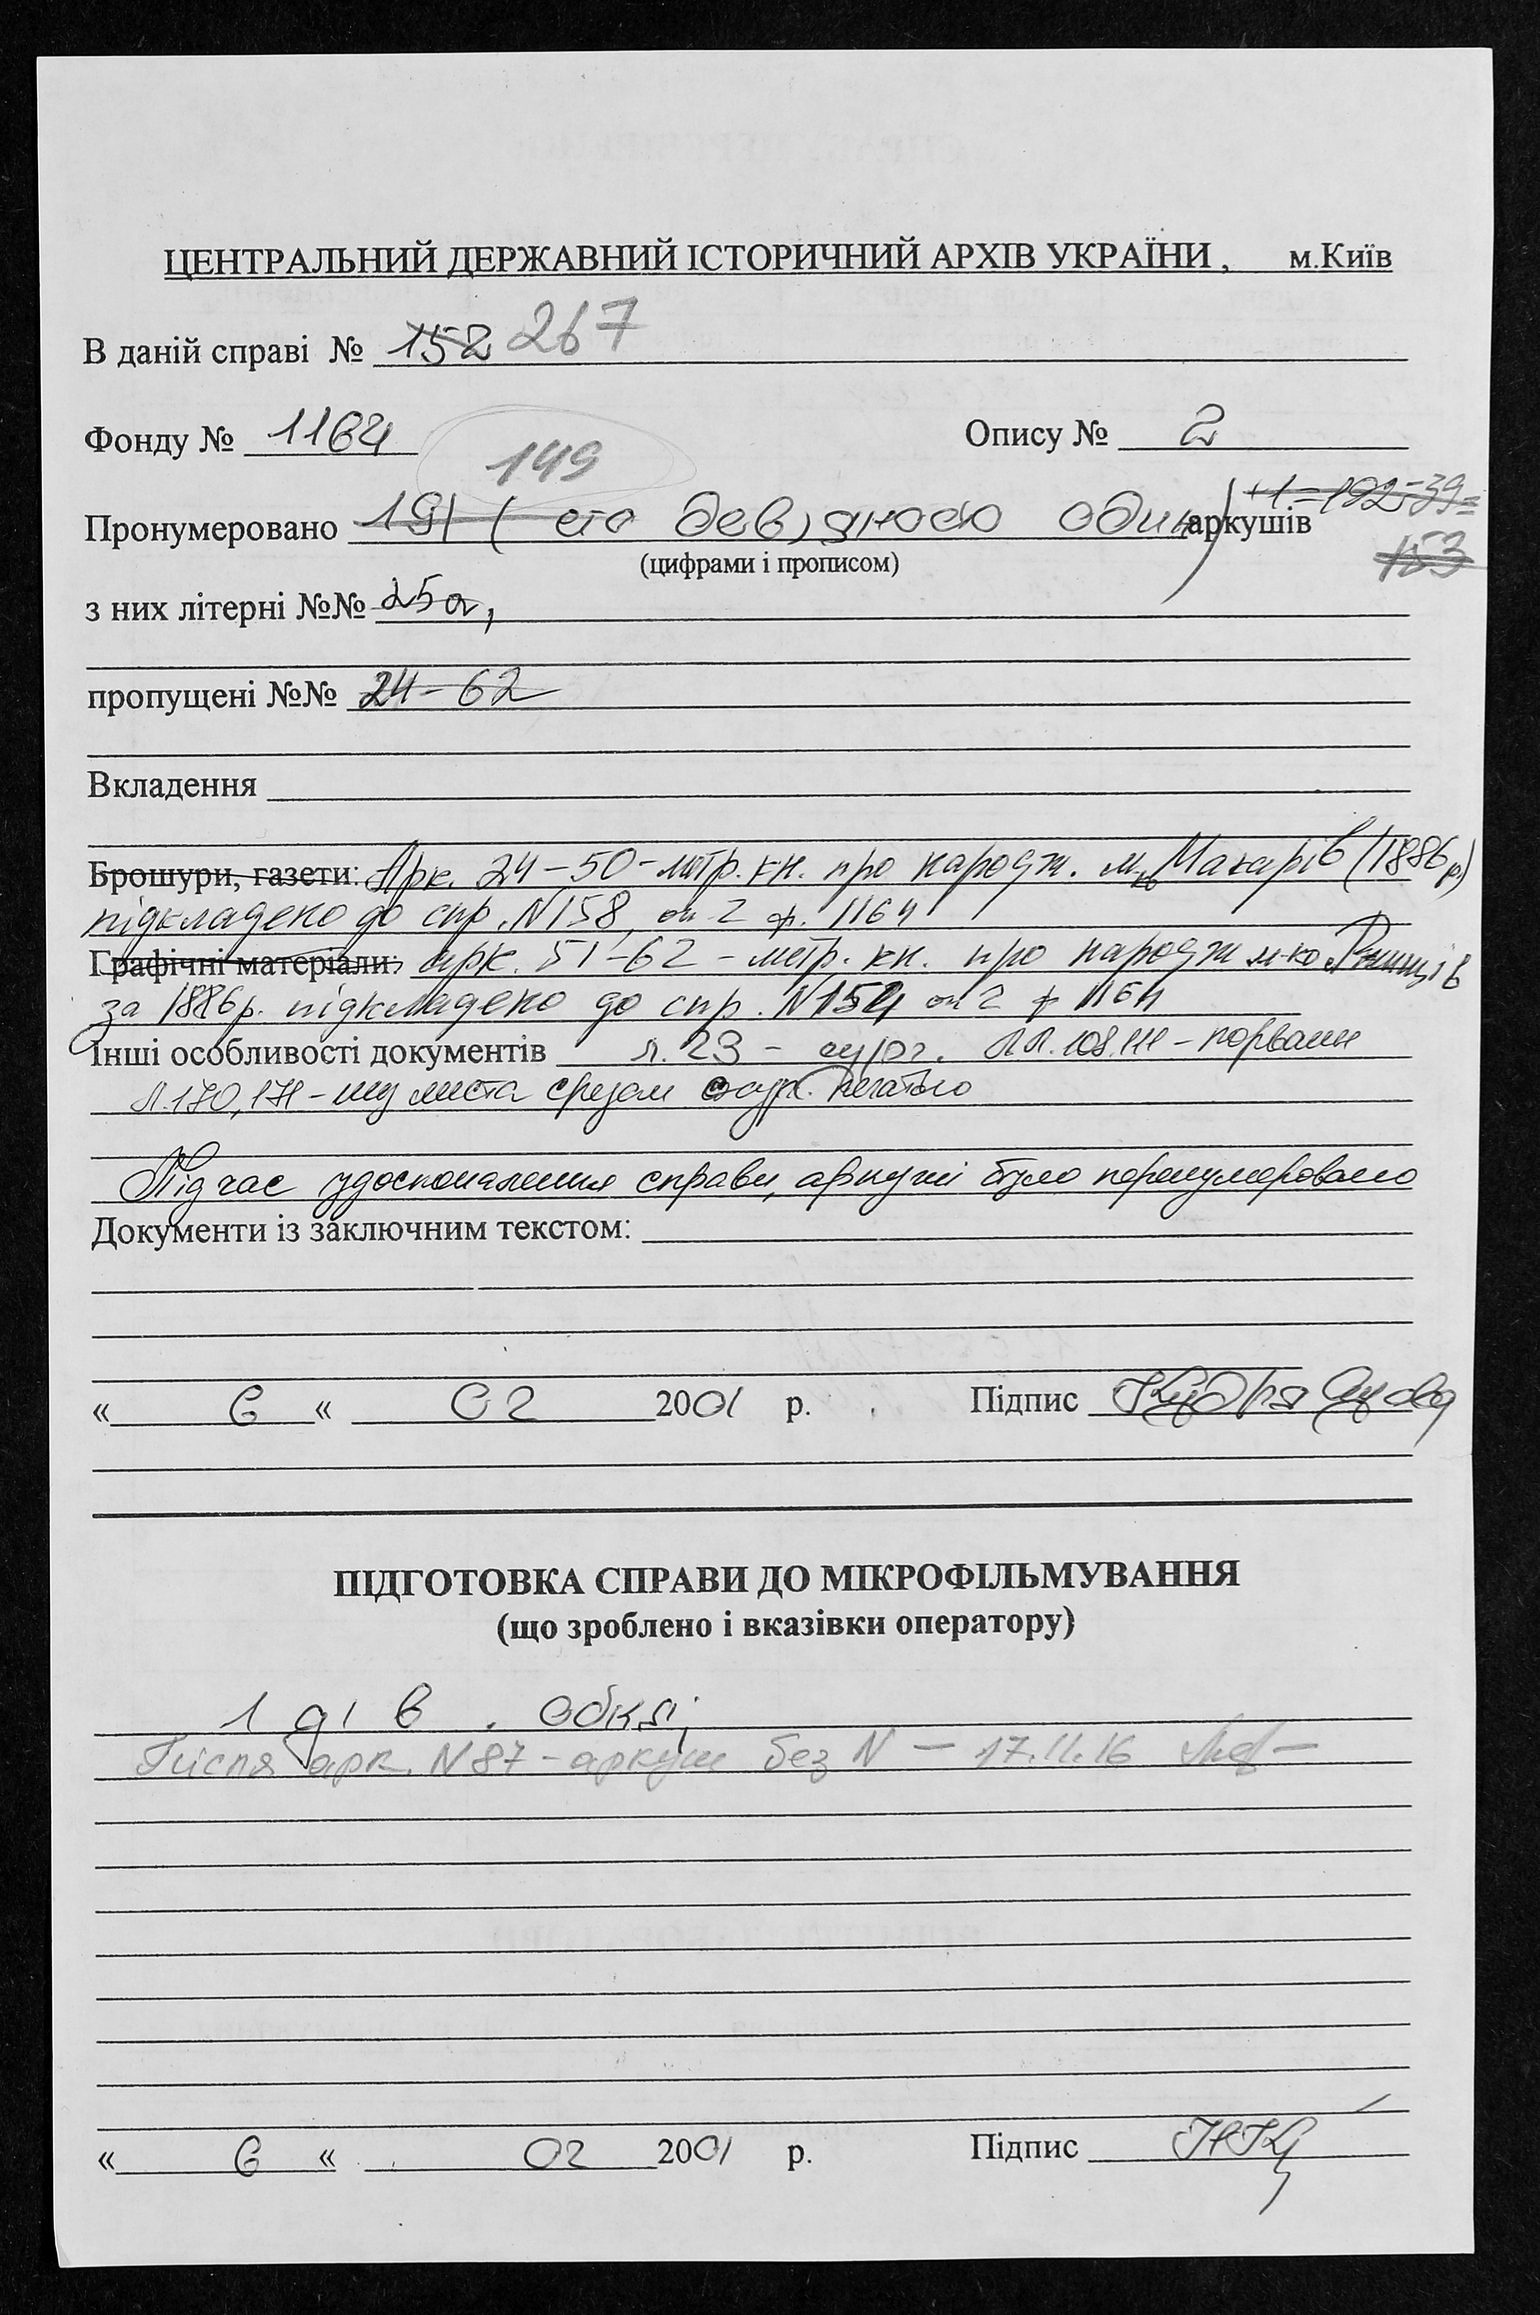 ЦЕНТРАЛЬНИЙ ДЕРЖАВНИЙ ІСТОРИЧНИЙ АРХІВ УКРАЇНИ , м.Київ
В даній справі № 152 267
Фонду № 1164 Опису № 2
149
Пронумеровано 191 ( сто дев'яносто один) аркушів +1=192-39=
(цифрами і прописом) 153
з них літерні №№ 25а,
пропущені №№ 24-62
Вкладення
Брошури, газети: Арк. 24-50 - метр. кн. про народж. Макарів (1886 р)
підкладено до спр. N158, оп 2 ф. 1164
Графічні матеріали: арк. 51-62 - метр. кн. про народж м-ко
за 1886р. підкладено до спр. N154 оп 2 ф 1164
Інші особливості документів л. 23 - лл. 108, 111 - порвани
л. 170, 171 - листа
Під час удосконалення справи, аркуші було перенумеровано
Документи із заключним текстом:
« 6 « 02 2001 р. Підпис
ПІДГОТОВКА СПРАВИ ДО МІКРОФІЛЬМУВАННЯ
(що зроблено і вказівки оператору)
1 обкл;
Після арк. N 87 - аркуш без N — 17.11.16
« 6 « 02 2001 р. Підпис